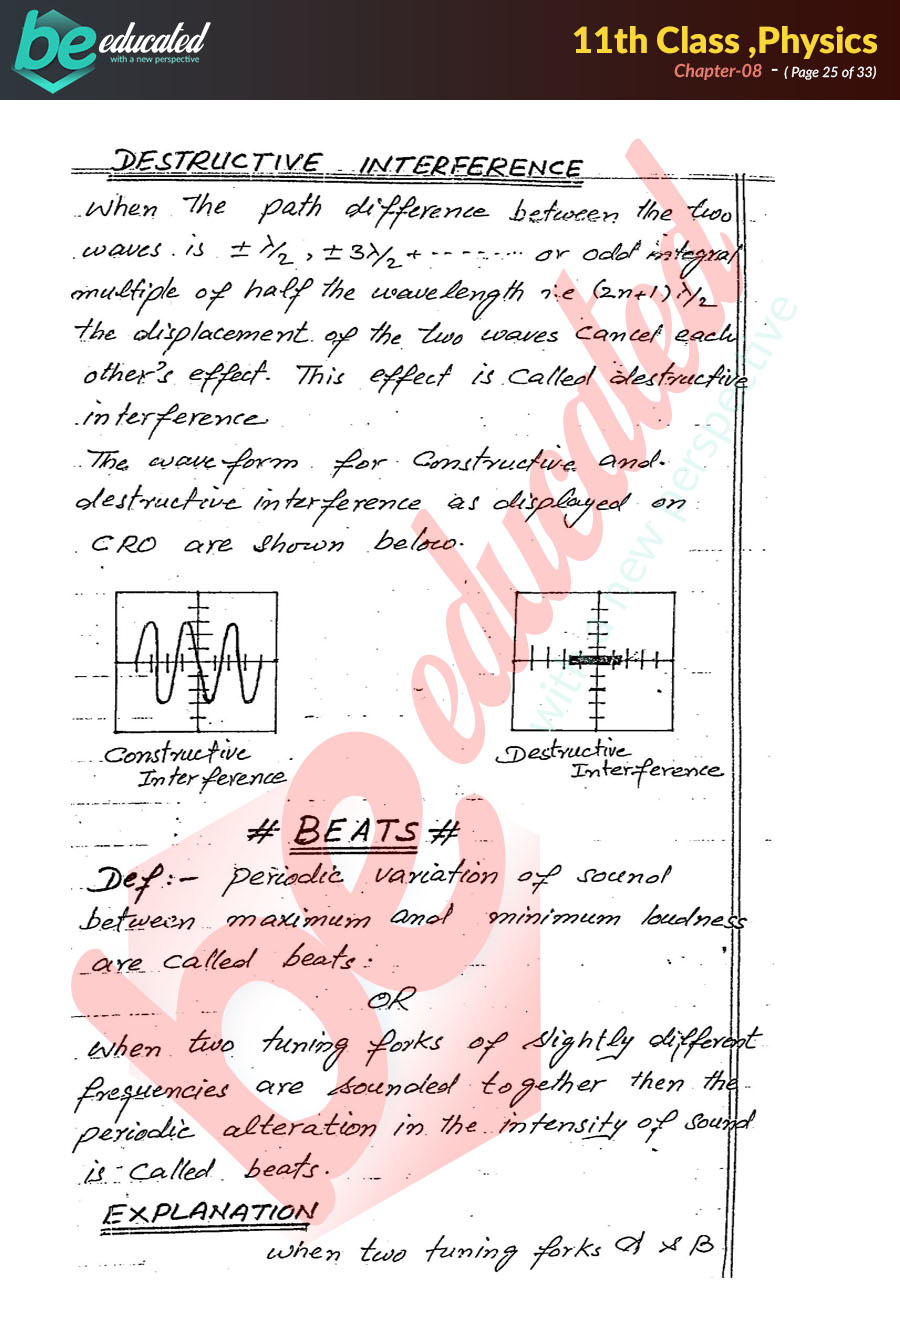 be educated
with a new perspective
11th Class ,Physics
Chapter-08 - ( Page 25 of 33)
DESTRUCTIVE INTERFERENCE
When The path difference between the two
waves is ± λ/2 , ± 3λ/2 + -------- or odd integral
multiple of half the wavelength i.e (2n+1) λ/2
the displacement of the two waves cancel each
other's effect. This effect is called destructive
interference
The wave form for Constructive and
destructive interference as displayed on
CRO are shown below.
Constructive
Interference
Destructive
Interference
# BEATS #
Def:- Periodic variation of sound
between maximum and minimum loudness
are called beats.
OR
When two tuning forks of slightly different
frequencies are sounded together then the
periodic alteration in the intensity of sound
is called beats.
EXPLANATION
When two tuning forks A & B
be educated
with a new perspective